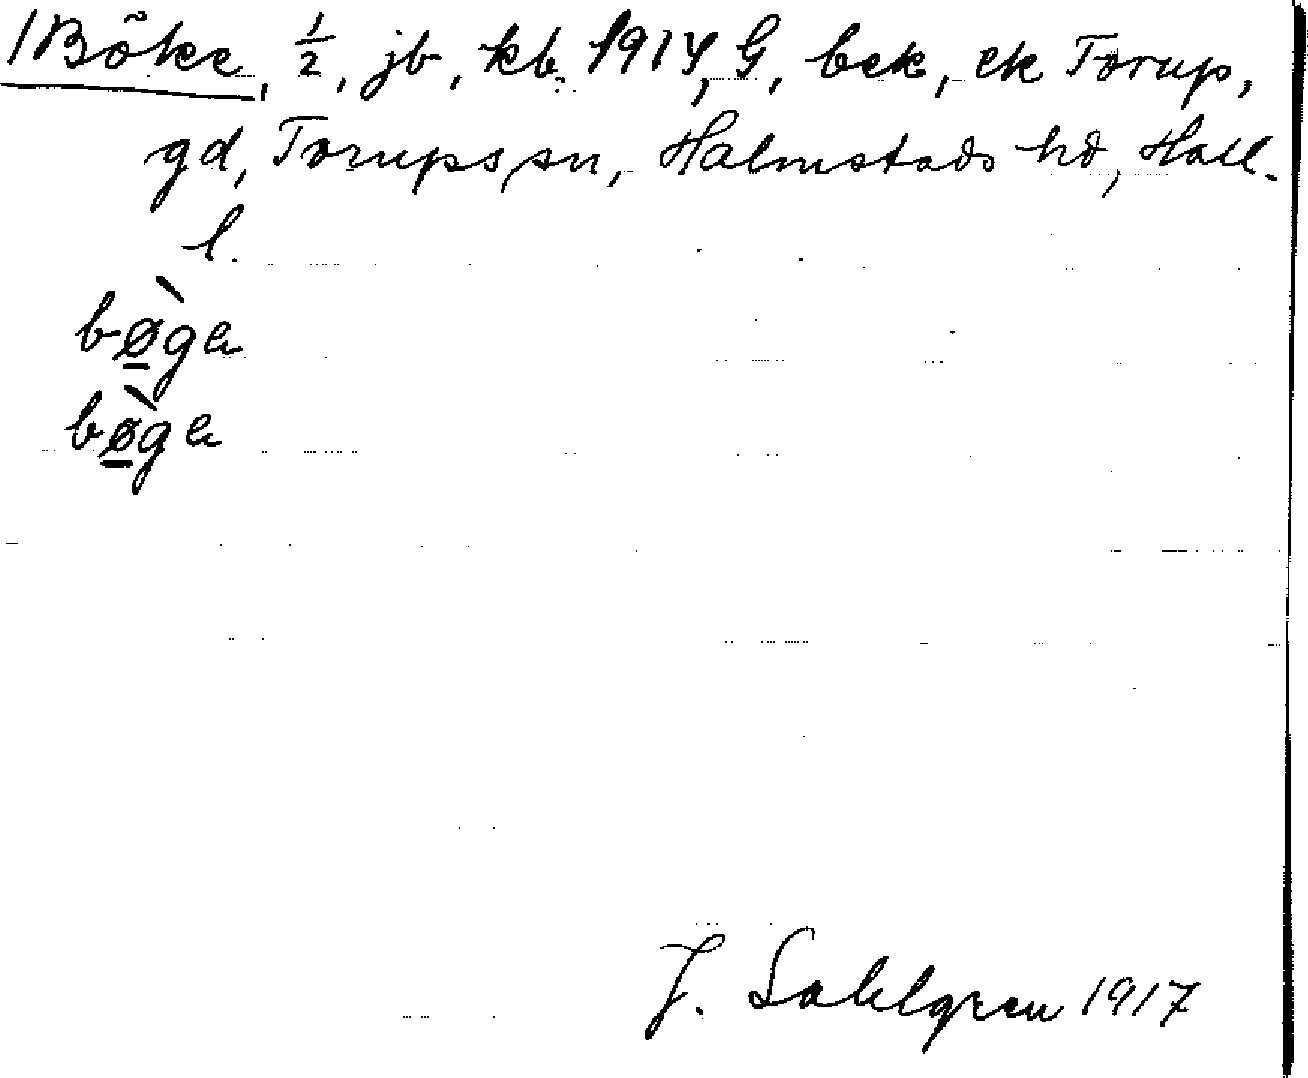 /Böke, ½, jb, kb. 1914, G, bek, ek Torup,
gd, Torups sn, Halmstads hd, Hall.
l.
bø̱̀ge
bø̱̀ge
J. Sahlgren 1917